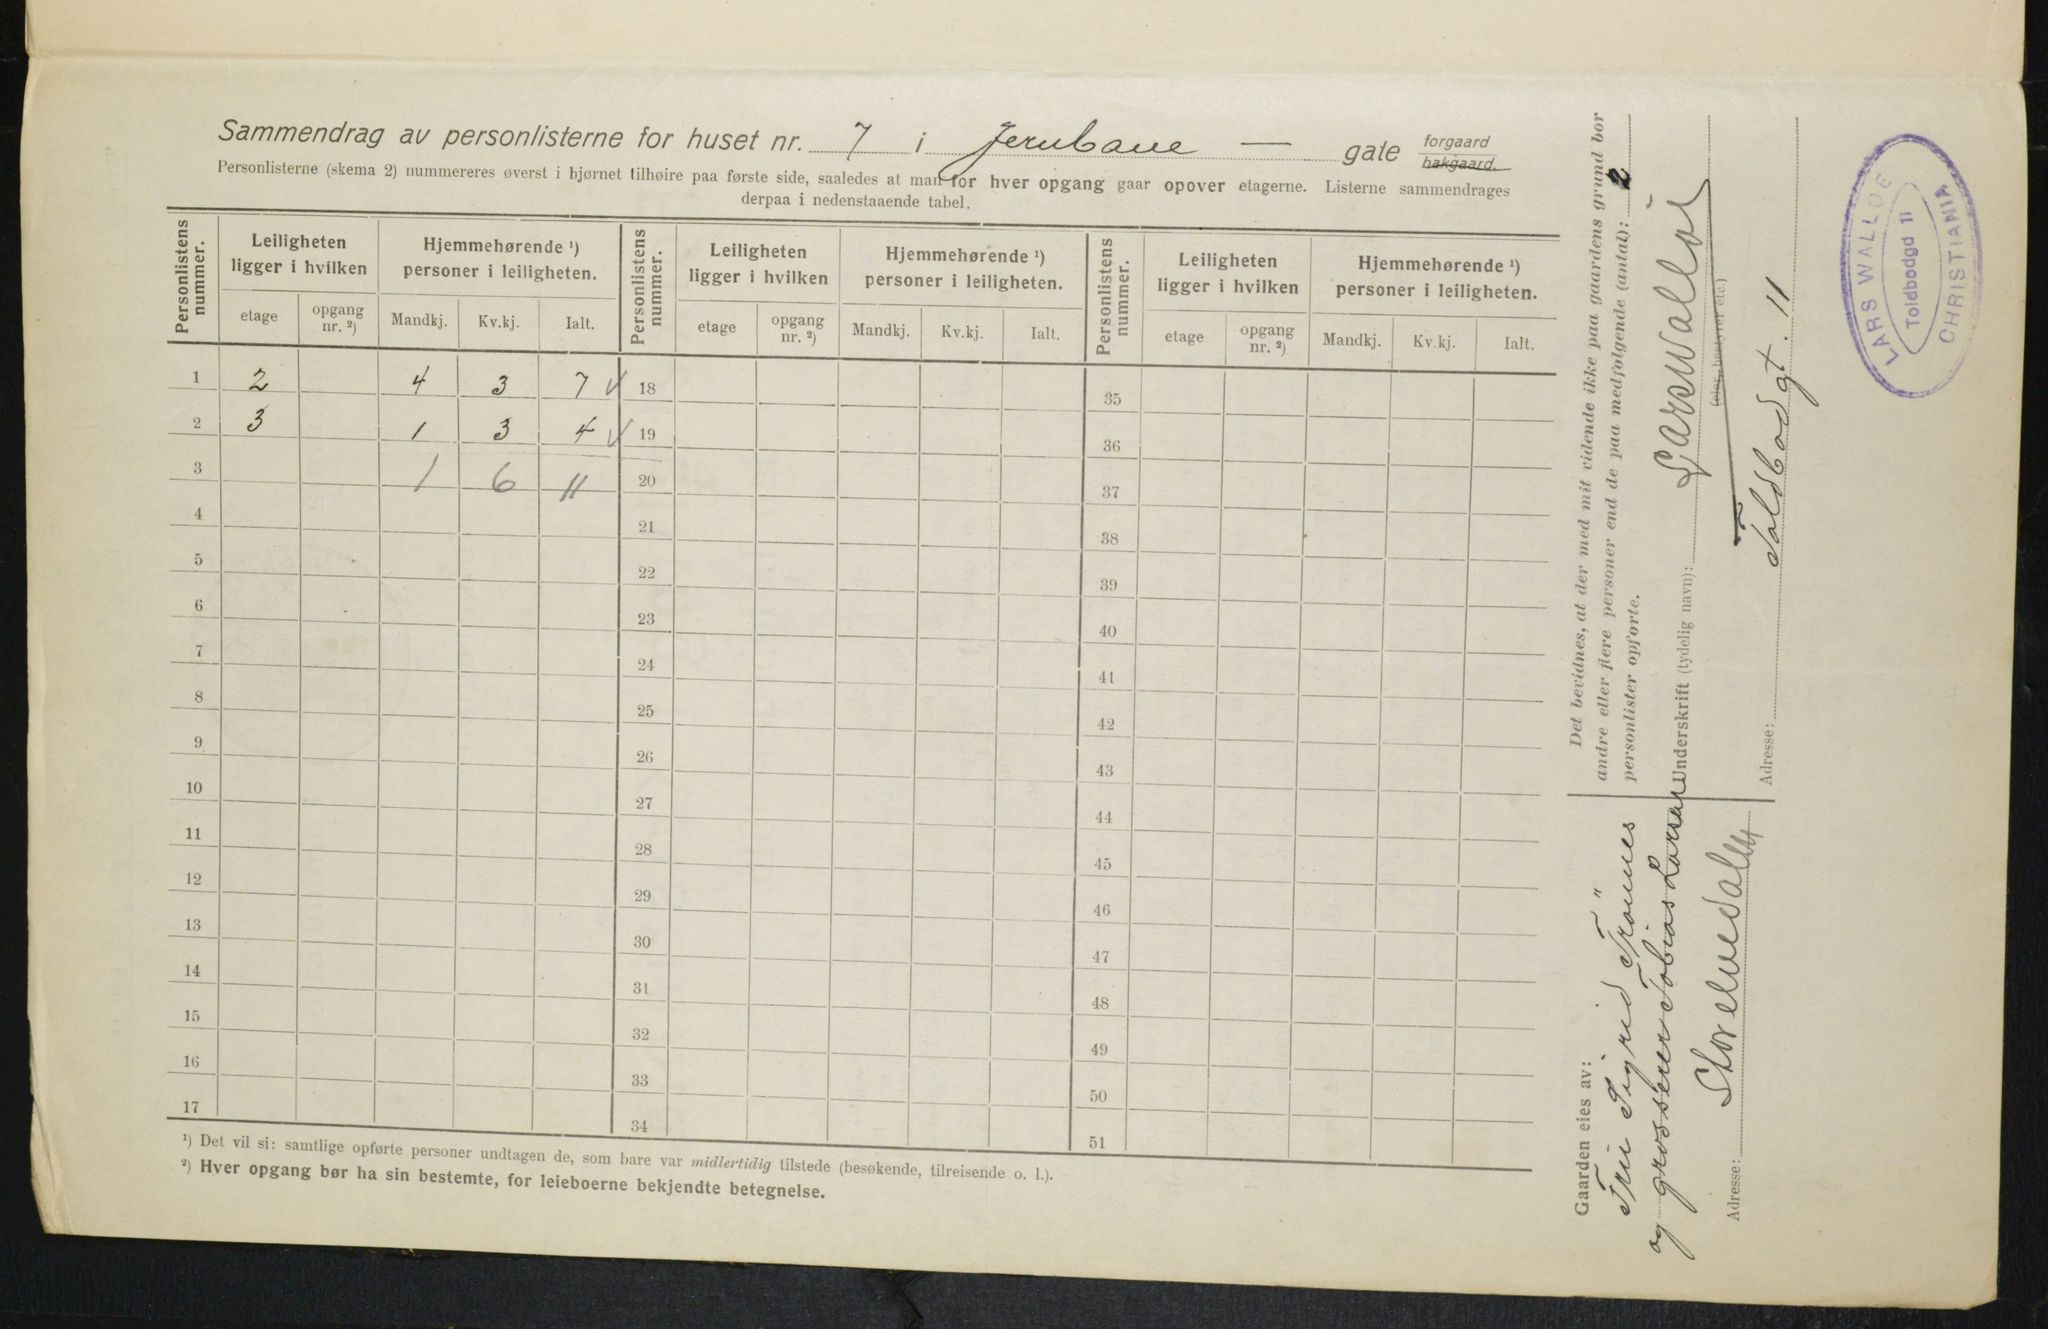 Sammendrag av personlisterne for huset nr. 7 i Jernbane — gate forgaard bakgaard.
Personlisterne (skema 2) nummereres øverst i hjørnet tilhøire paa første side, saaledes at man for hver opgang gaar opover etagerne. Listerne sammendrages
derpaa i nedenstaaende tabel.
Personlistens nummer. Leiligheten ligger i hvilken Hjemmehørende ¹) personer i leiligheten. Personlistens nummer. Leiligheten ligger i hvilken Hjemmehørende ¹) personer i leiligheten. Personlistens nummer. Leiligheten ligger i hvilken Hjemmehørende ¹) personer i leiligheten.
etage opgang nr. ²) Mandkj. Kv.kj. Ialt. etage opgang nr. ²) Mandkj. Kv.kj. Ialt. etage opgang nr. ²) Mandkj. Kv.kj. Ialt.
1 2 4 3 7 18 35
2 3 1 3 4 19 36
3 1 6 11 20 37
4 21 38
5 22 39
6 23 40
7 24 41
8 25 42
9 26 43
10 27 44
11 28 45
12 29 46
13 30 47
14 31 48
15 32 49
16 33 50
17 34 51
¹) Det vil si: samtlige opførte personer undtagen de, som bare var midlertidig tilstede (besøkende, tilreisende o. l.).
²) Hver opgang bør ha sin bestemte, for leieboerne bekjendte betegnelse.
Gaarden eies av:
Sigrid
og grosserer Tobias Larsen
Adresse:
Det bevidnes, at der med mit vidende ikke paa gaardens grund bor
andre eller flere personer end de paa medfølgende (antal): 2
personlister opførte.
Underskrift (tydelig navn): Lars Walløe
(eier, bestyrer etc.)
Adresse: Toldbodgt. 11
LARS WALLOE
Toldbodgd 11
CHRISTIANIA